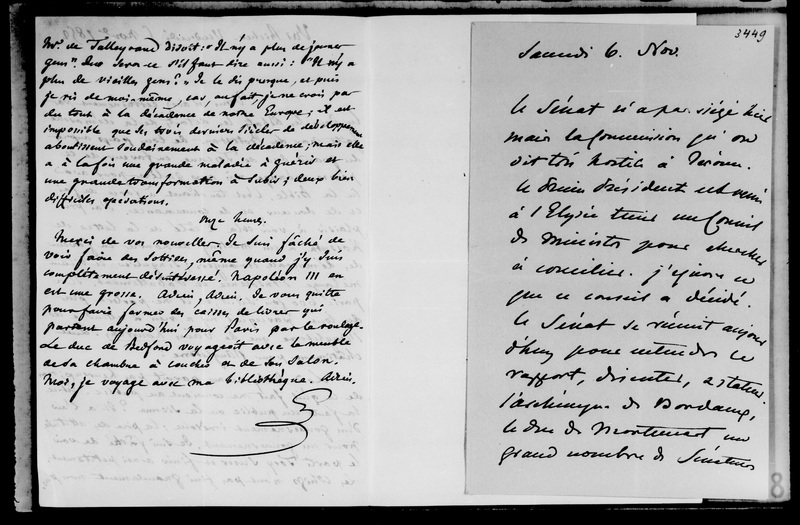 Mr. de Talleyrand disoit: "Il n'y a plus de jeunes
gens". Que sera-ce s'il faut dire aussi: "Il n'y a
plus de vieilles gens?" Je le dis presque, et puis
je ris de moi-même, car, au fait, je ne crois pas
du tout à la décadence de notre Europe; il est
impossible que les trois derniers siècles de développement
aboutissent soudainement à la décadence; mais elle
a à la fois une grande maladie à guérir et
une grande transformation à subir; deux bien
difficiles opérations.
Onze heures.
Merci de vos nouvelles. Je suis fâché de
voir faire des sottises, même quand j'y suis
complètement désintéressé. Napoléon III en
est une grosse. Adieu, Adieu. Je vous quitte
pour faire fermer des caisses de livres qui
partent aujourd'hui pour Paris par le roulage.
Le duc de Bedford voyageoit avec le meuble
de sa chambre à coucher et de son salon.
Moi, je voyage avec ma bibliothèque. Adieu.
3449
Samedi 6. Nov.
le Sénat n'a pas siégé hier
mais la Commission qu'on
dit très hostile à Jérôme.
le Président est venu
à l'Elysée tenir un Conseil
de Ministres pour chercher
à concilier. j'ignore ce
que ce conseil a décidé.
le Sénat se réunit aujour
d'huy pour entendre le
rapport, discuter, & statuer.
l'archevêque de Bordeaux,
le duc de Mortemart un
grand nombre de Sénateurs
8